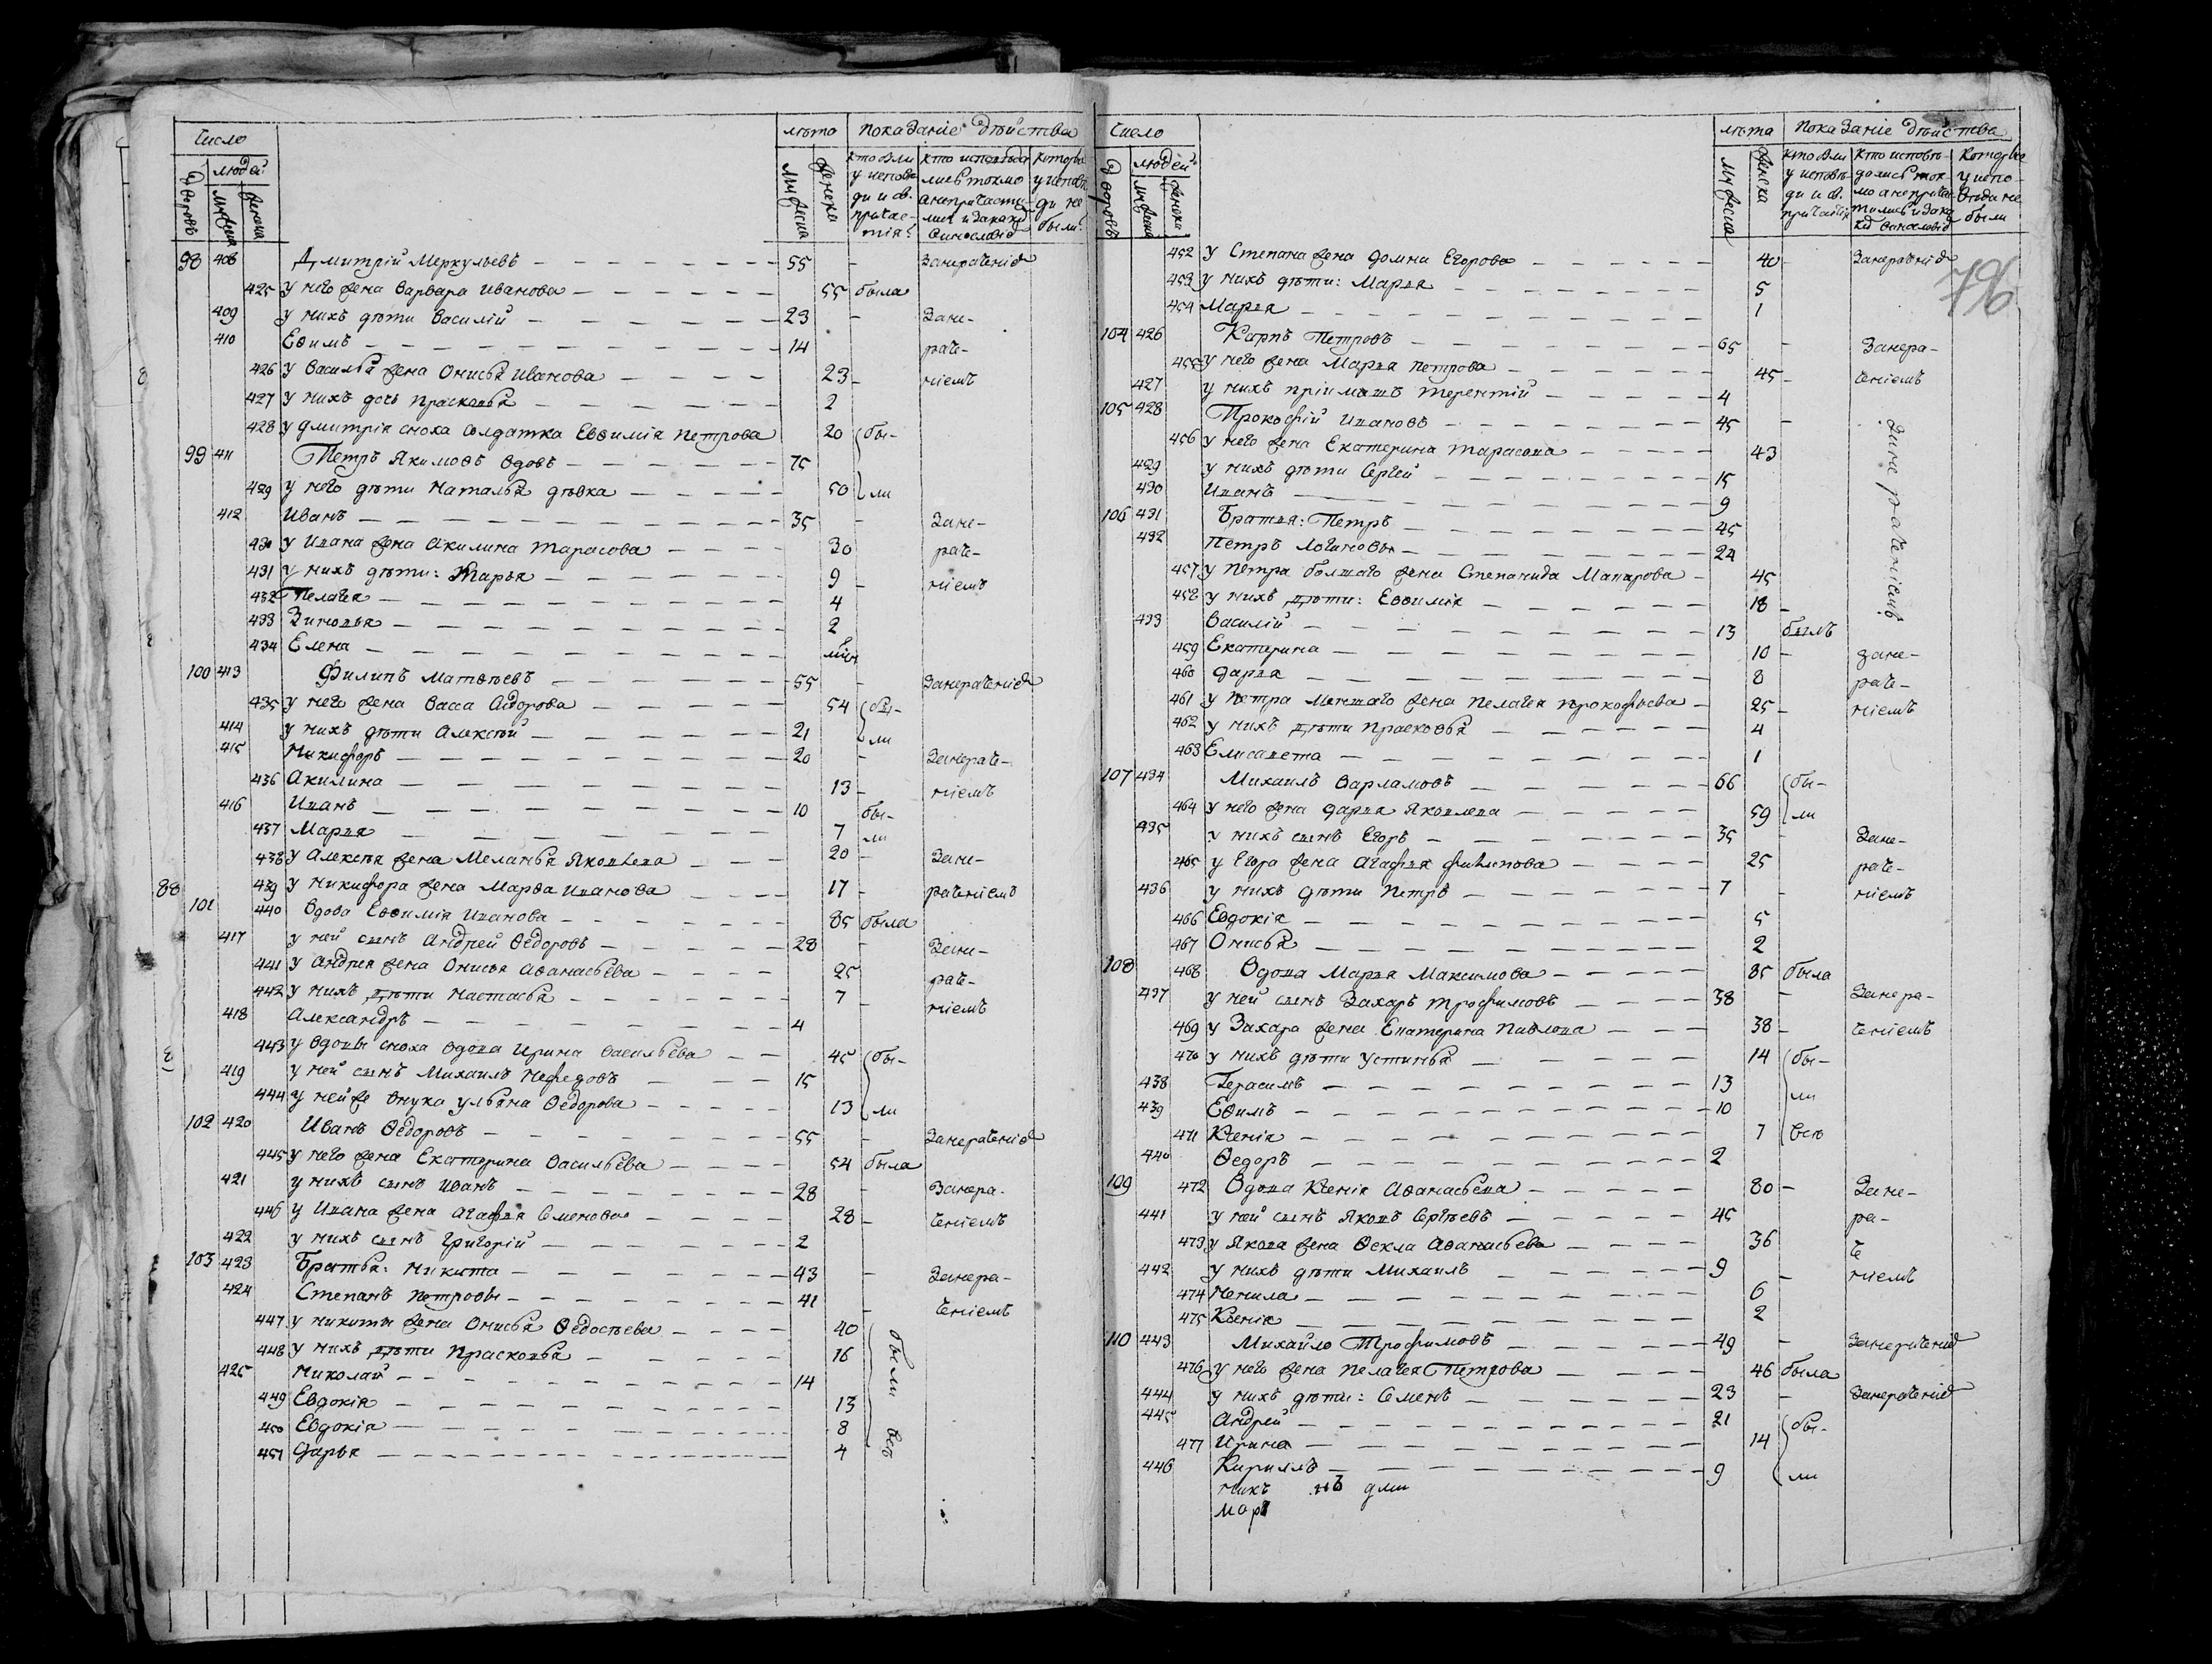 Число
люде͠й
дворовъ
мужеска
женска
лѣта
мужеска
женска
показаніе дѣйства
кто были у исповѣди и св. причастія
кто исповѣдались токмо а непричастились и за какою виною
которые у исповѣди не были
98 408 Дмитрій Меркульевъ 55 – Занераченіе
425 у него жена Варвара Иванова 55 была
409 у нихъ дѣти Василій 23 – Зане-
410 Ефимъ 14 раче-
426 у Василья жена Онисья Иванова 23 – ніемъ
427 у нихъ дочь Прасковья 2
428 у Дмитрія сноха солдатка Евѳимія Петрова 20 бы-
99 411 Петръ Якимовъ вдовъ 75
429 у него дѣти Наталья дѣвка 50 ли
412 Иванъ 35 – Зане-
430 у Ивана жена Акилина Тарасова 30 раче-
431 у нихъ дѣти: Марья 9 – ніемъ
432 Пелагея 4
433 Зиновья 2
434 Елена
100 413 Филипъ Матвѣевъ 55 – Занераченіе
435 у него жена Васса Сидорова 54 бы-
414 у нихъ дѣти Алексѣй 21 ли
415 Никифоръ 20 – Занераче-
436 Акилина 13 – ніемъ
416 Иванъ 10 бы-
437 Марья 7 ли
438 у Алексѣя жена Меланья Яковлева 20 – Зане-
88 439 у Никифора жена Марѳа Иванова 17 – раченіемъ
101 440 Вдова Евѳимія Иванова 85 была
417 у ней сынъ Андрей Ѳедоровъ 28 – Зане-
441 у Андрея жена Онисья Аѳанасьева 25 раче-
442 у нихъ дѣти Настасья 7 – ніемъ
418 Александръ 4
443 у вдовы сноха вдова Ирина Васильева 45 бы-
419 у ней сынъ Михаилъ Нефедовъ 15
444 у нейже внука Ульяна Ѳедорова 13 ли
102 420 Иванъ Ѳедоровъ 55 – Занераченіе
445 у него жена Екатерина Васильева 54 была
421 у нихъ сынъ Иванъ 28 – Занера-
446 у Ивана жена Агафья Семенова 28 – ченіемъ
422 у нихъ сынъ Григорій 2
103 423 Братья: Никита 43 – Занера-
424 Степанъ Петровы 41 – ченіемъ
447 у Никиты жена Онисья Ѳедосѣева 40 были всѣ
448 у нихъ дѣти Прасковья 16
425 Николай 14
449 Евдокія 13
450 Евдокія 8
451 Дарья 4
Число
людей
дворовъ
мужеска
женска
лѣта
мужеска
женска
показаніе дѣйства
кто были у исповѣди и св. причастія
кто исповѣдались токмо а непричастились и за какою виною
которые у исповѣди не были
796
452 у Степана жена Домна Егорова 40 – Занераченіе
453 у нихъ дѣти: Марья 5
454 Марья 1
104 426 Карпъ Петровъ 65 – Занера-
455 у него жена Марья Петрова 45 – ченіемъ
427 у нихъ пріимышъ Терентій 4
105 428 Прокофій Ивановъ 45 – Зане раченіемъ
456 у него жена Екатерина Тарасова 43
429 у нихъ дѣти Сергей 15
430 Иванъ 9
106 431 Братья: Петръ 45
432 Петръ Логиновы 24
457 у Петра болшаго жена Степанида Макарова 45
458 у нихъ дѣти: Евѳимія 18 –
433 Василій 13 былъ
459 Екатерина 10 – зане-
460 Дарья 8 раче-
461 у Петра меншаго жена Пелагея Прокофьева 25 – ніемъ
462 у нихъ дѣти Прасковья 4
463 Елисавета 1
107 434 Михаилъ Варламовъ 66 бы-
464 у него жена Дарья Яковлева 59 ли
435 у нихъ сынъ Егоръ 35 – Зане-
465 у Егора жена Агафья Филипова 25 раче-
436 у нихъ дѣти Петръ 7 – ніемъ
466 Евдокія 5
467 Онисья 2
108 468 Вдова Марья Максимова 85 была
437 у ней сынъ Захаръ Трофимовъ 38 – Занера-
469 у Захара жена Екатерина Павлова 38 – ченіемъ
470 у нихъ дѣти Устинья 14 бы-
438 Герасимъ 13 ли
439 Ефимъ 10
471 Ксенія 7 всѣ
440 Ѳедоръ 2
109 472 Вдова Ксенія Аѳанасьева 80 – Зане-
441 у ней сынъ Яковъ Сергѣевъ 45 ра-
473 у Якова жена Ѳекла Аѳанасьева 36 че
442 у нихъ дѣти Михаилъ 9 – ніемъ
474 Ненила 6
475 Ксенія 2
110 443 Михайло Трофимовъ 49 – Занераченіе
476 у него жена Пелагея Петрова 46 была
444 у нихъ дѣти: Семенъ 23 – Занераченіе
445 Андрей 21 бы-
477 Ирина 14
446 Кириллъ 9 ли